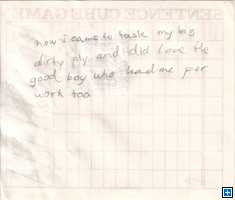 SENTENCE CUBE GAME
how i came to taste my big
dirty ply and did love the
good boy who had me for
work too